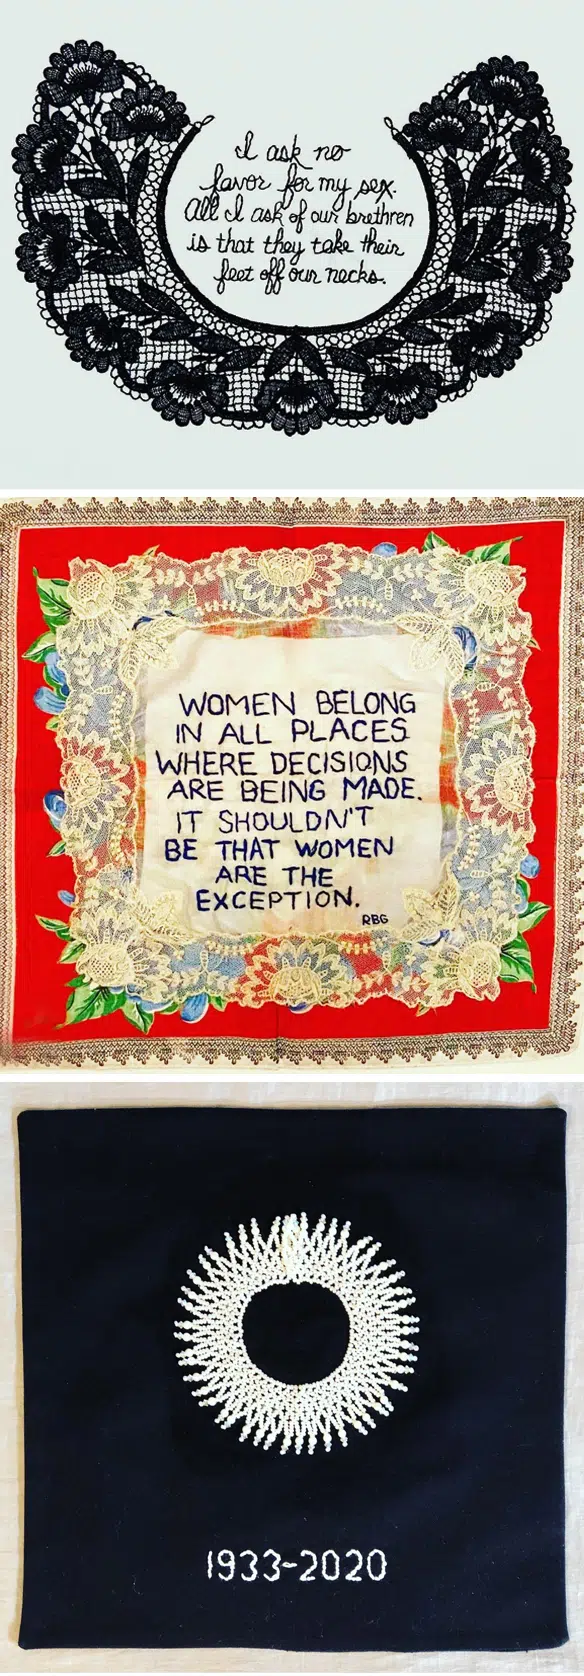 I ask no
favor for my sex.
All I ask of our brethren
is that they take their
feet off our necks.
WOMEN BELONG
IN ALL PLACES
WHERE DECISIONS
ARE BEING MADE.
IT SHOULDN'T
BE THAT WOMEN
ARE THE
EXCEPTION.
RBG
1933-2020